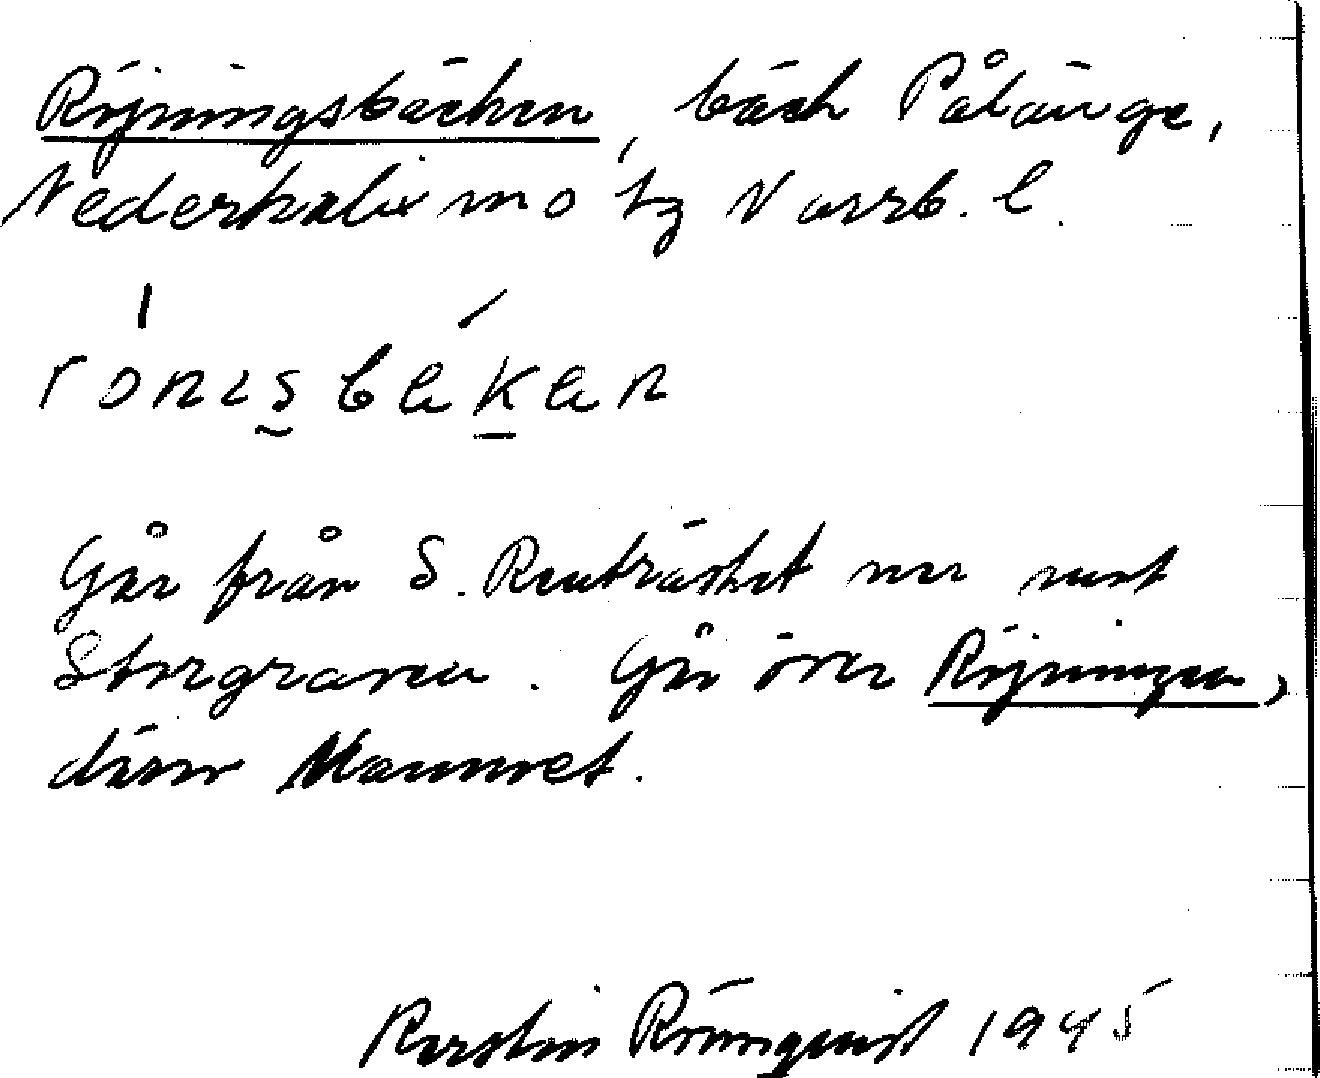 Röjningsbäcken, bäck Pålänge,
Nederkalix sn o tg Norrb. l.
rónıs̰bækæn
Går från S. Renträsket ner mot
Storgraven. Går över Röjningen,
därav Namnet.
Kerstin Rönnquist 1945